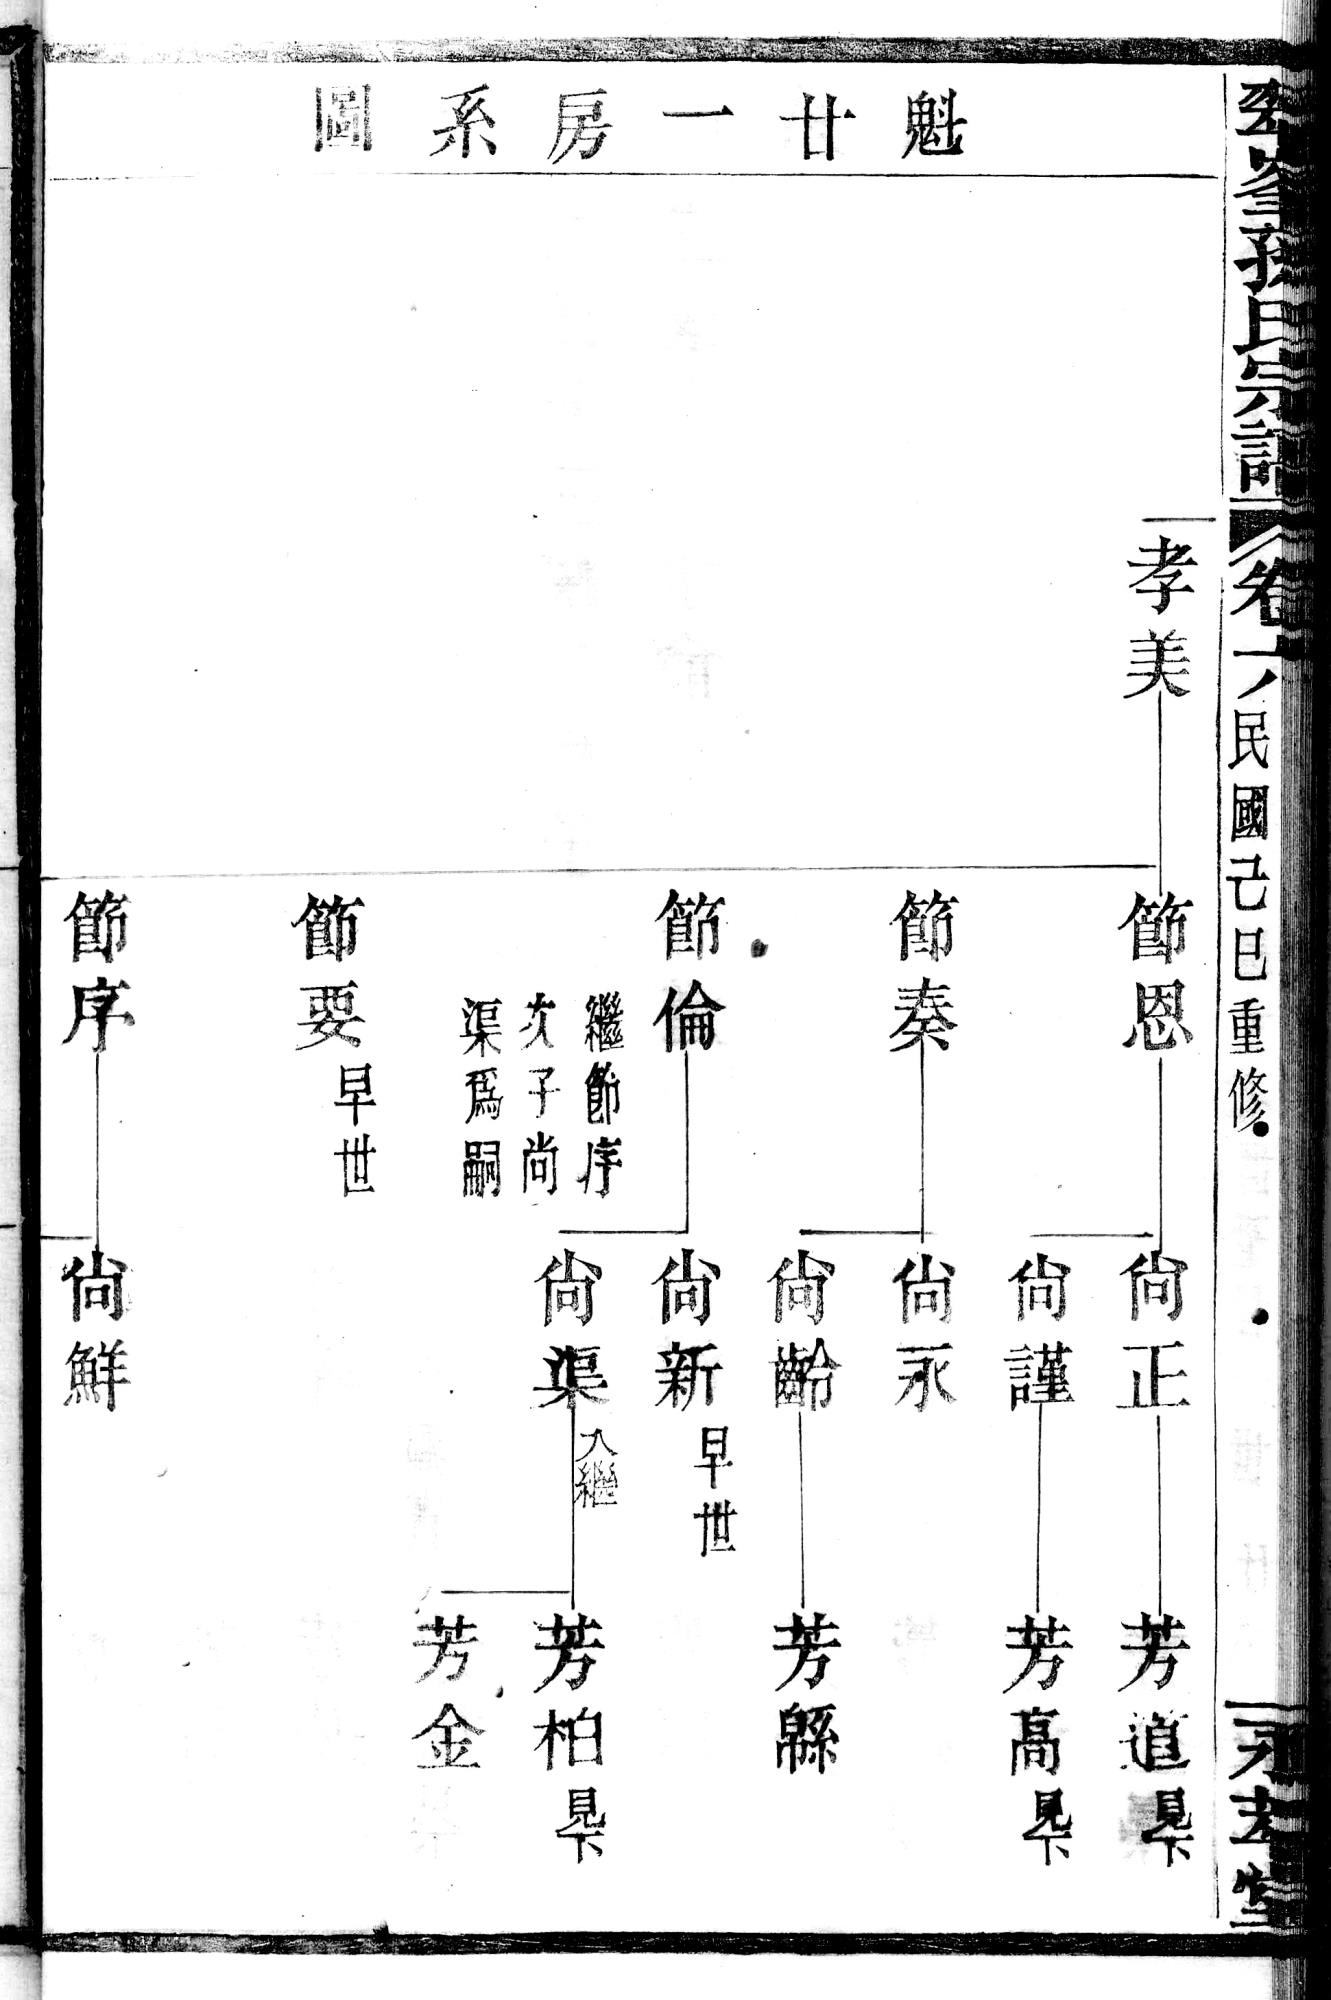 魁廿一房系圖
孫氏宗譜
卷
民國己巳重修
孝美
節恩
節奏
節倫
繼節序
次子尚
渠爲嗣
節要
早世
節序
尚正
尚謹
尚永
尚齡
尚新
早世
尚渠
入繼
尚鮮
芳道
見下
芳高
見下
芳緜
芳柏
見下
芳金